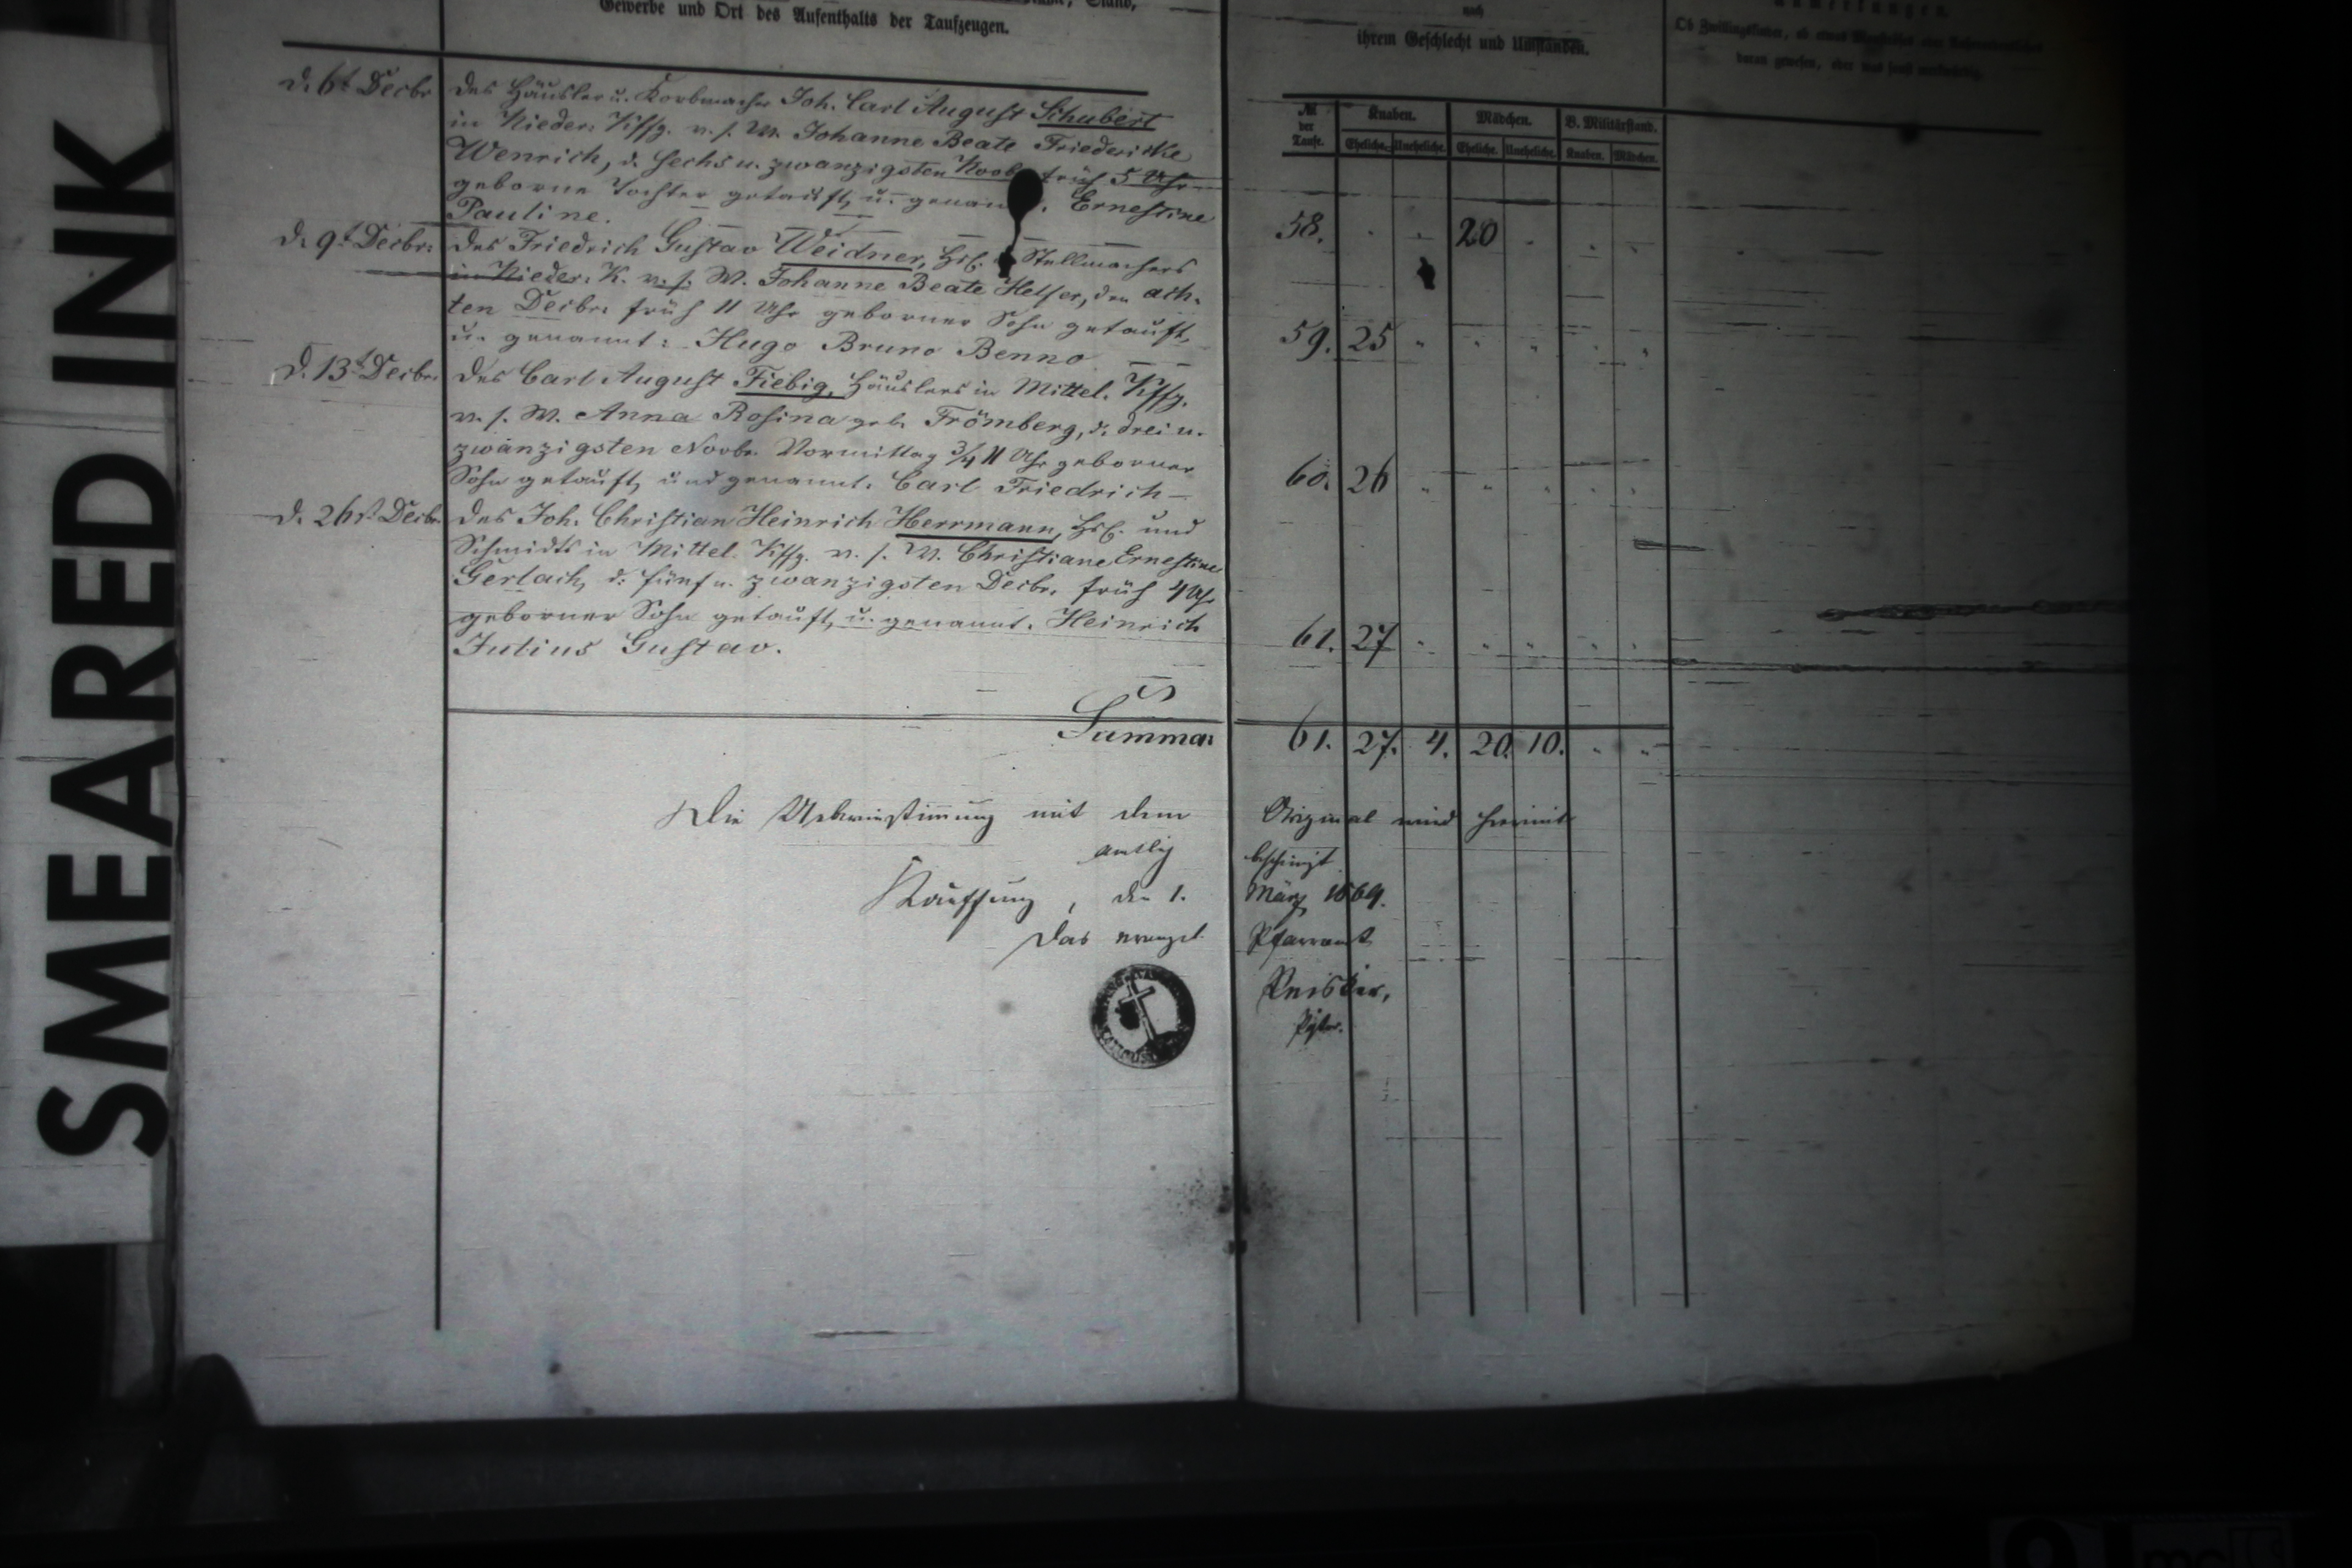 SMEARED INK
Gewerbe und Ort des Aufenthalts der Taufzeugen.
nach
ihrem Geschlecht und Umständen.
Anmerkungen.
Ob Zwillingskinder, ob etwas
daran gewesen, oder was sonst merkwürdig.
№ der Taufe.
Knaben. Mädchen. B. Militärstand.
Eheliche. Uneheliche. Eheliche. Uneheliche. Knaben. Mädchen.
d. 6t Decbr des Häusler u. Korbmacher Joh. Carl August Schubert
in Nieder. Kffg. v. s. W. Johanne Beate Friedericke
Wenrich, d. sechs u. zwanzigsten Novbr früh 5 Uhr
geborne Tochter getauft, u. genannt. Ernestine
Pauline.
58. 20
d. 9t Decbr. des Friedrich Gustav Weidner, Hsl. Stellmachers
in Nieder. K. v. s. W. Johanne Beate Helfer, den ach-
ten Decbr. früh 11 Uhr geborner Sohn getauft,
u. genannt: Hugo Bruno Benno
59. 25
d. 13t Decbr. des Carl August Fiebig, Häuslers in Mittel. Kffg.
v. s. W. Anna Rosina geb. Frömberg, d. drei u.
zwanzigsten Novbr. Vormittag 3/4 11 Uhr geborner
Sohn getauft, und genannt. Carl Friedrich
60. 26
d. 26st Decbr. des Joh. Christian Heinrich Herrmann, Hsl. und
Schmidts in Mittel Kffg. v. s. W. Christiane Ernestine
Gerlach, d. fünf u. zwanzigsten Decbr. früh 4 Uhr
geborner Sohn getauft, u. genannt. Heinrich
Julius Gustav.
61. 27
Summa: 61. 27. 4. 20. 10.
Die Uebereinstimmung mit dem Original wird hiermit
amtlich bescheinigt
Kauffung, den 1. März 1869.
Das evangel. Pfarramt